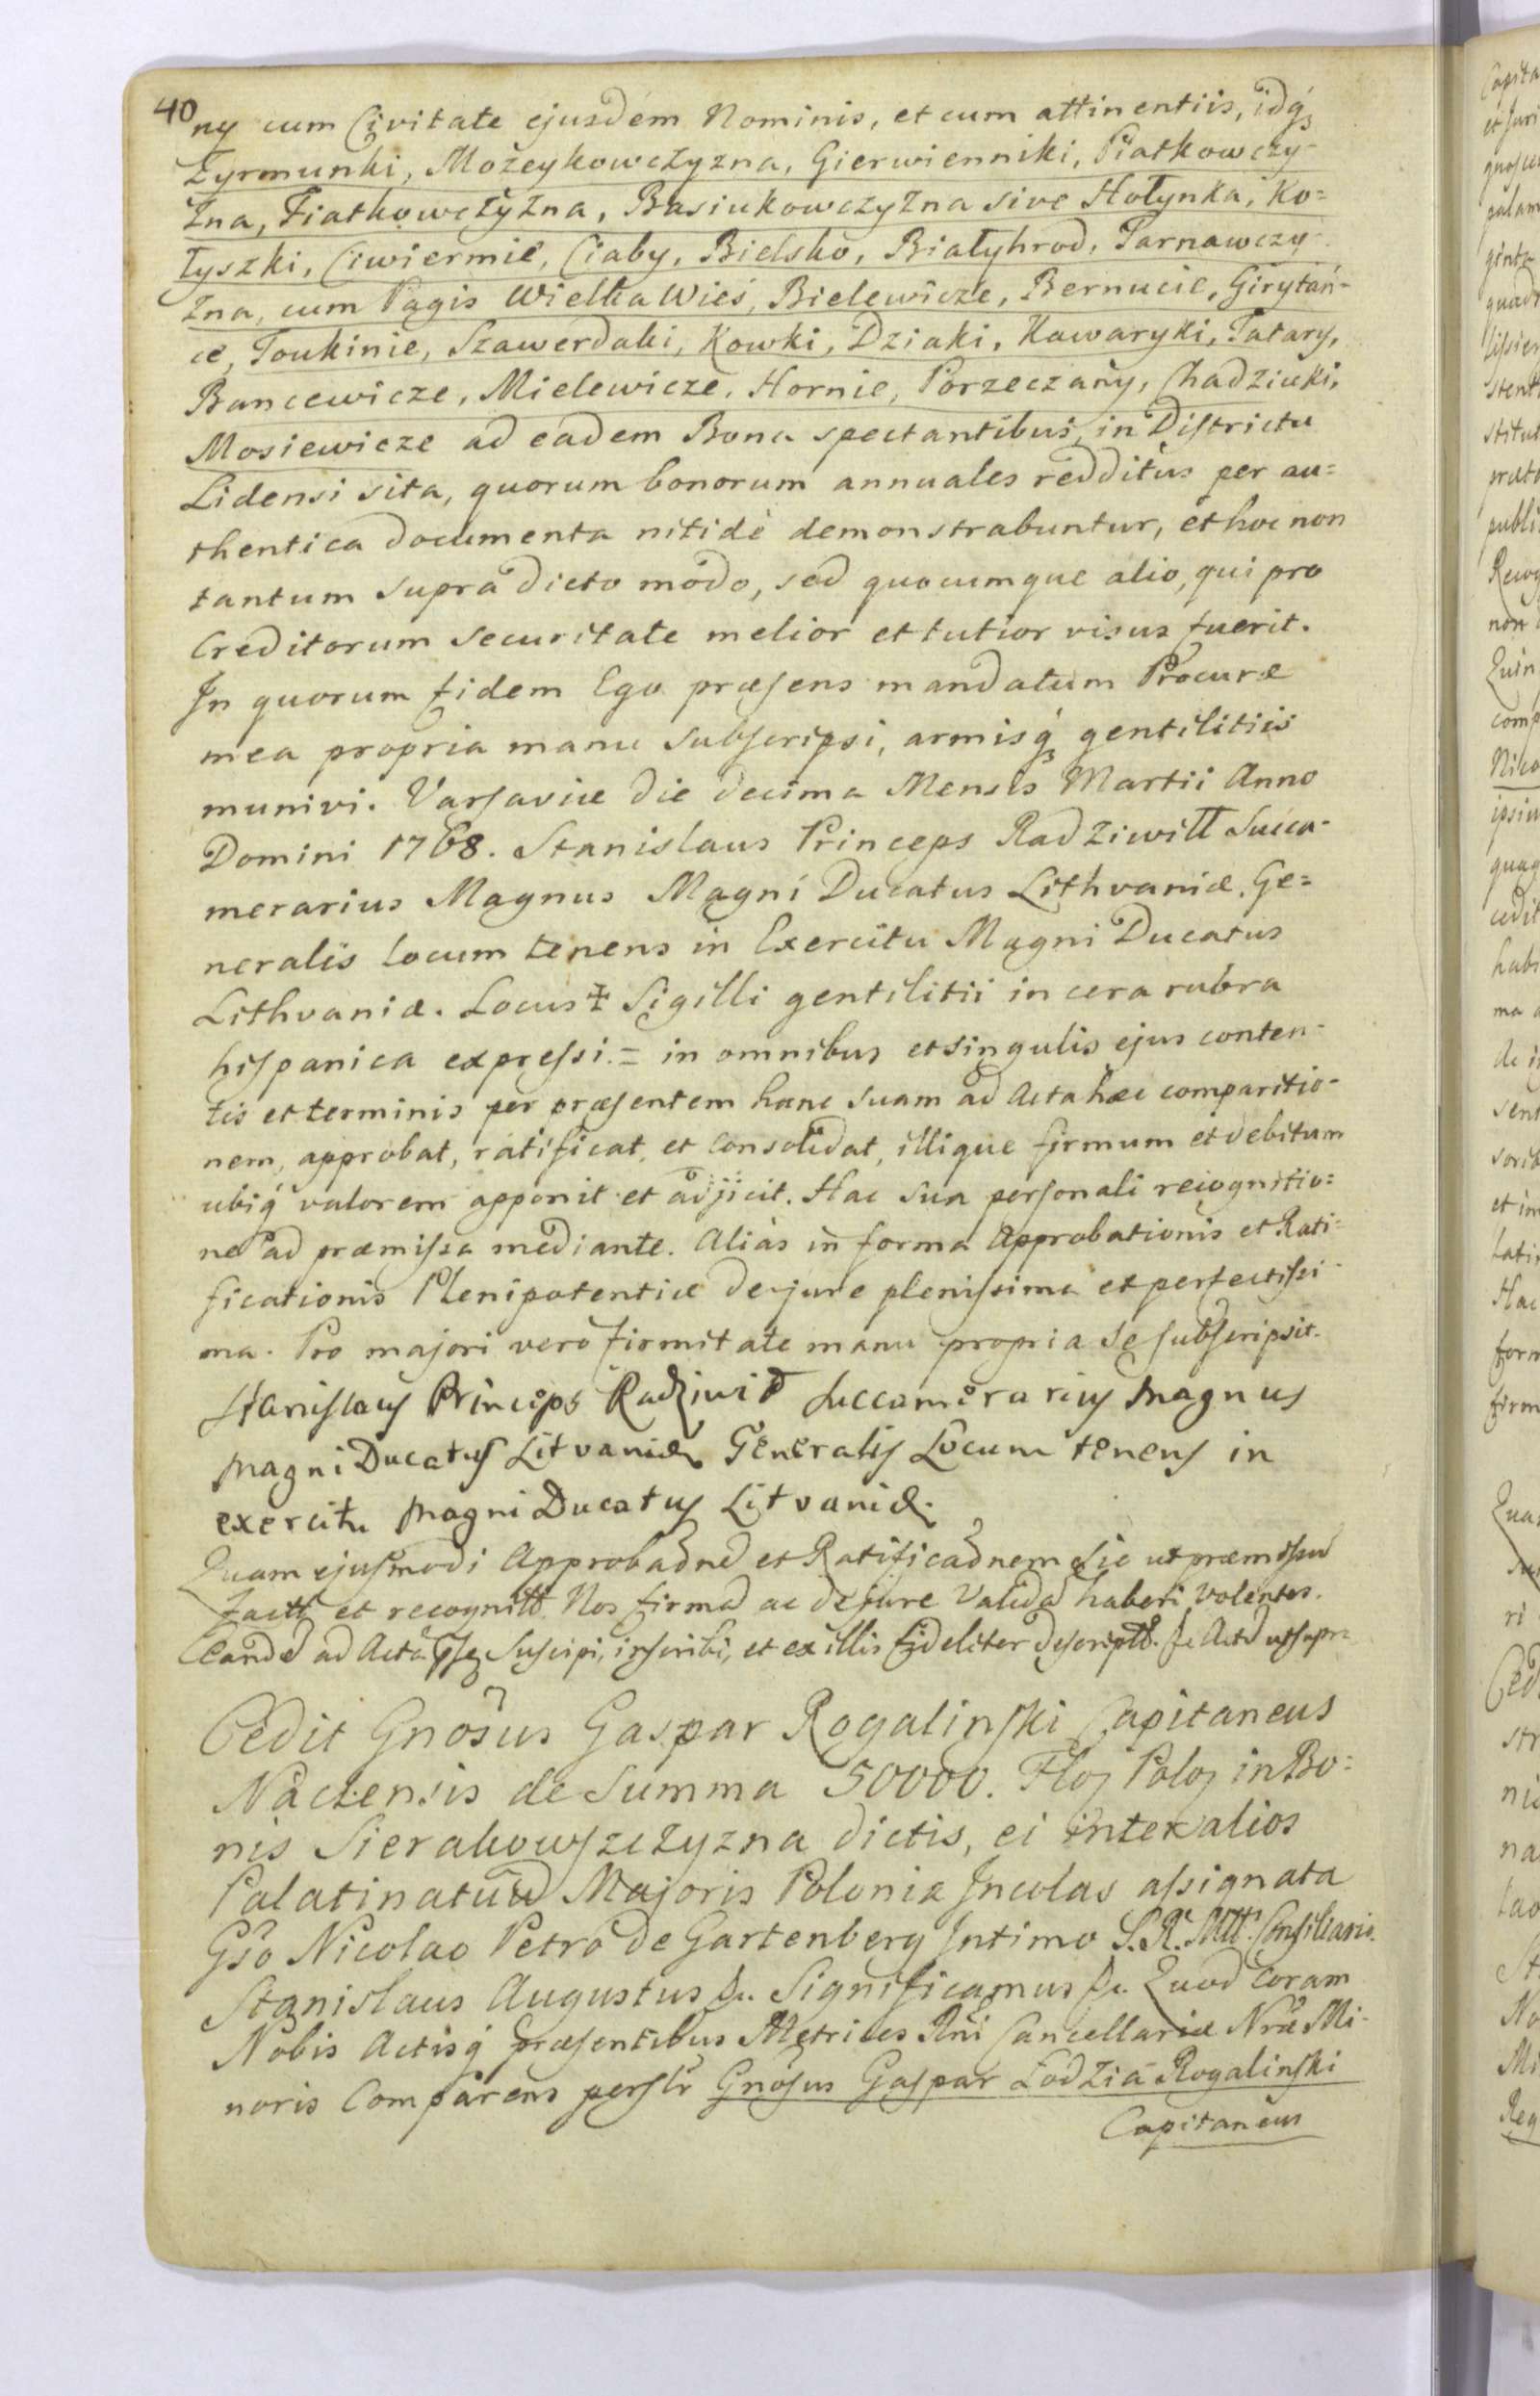 40
ny cum Civitate ejusdem Nominis, et cum attinentiis, idq́ꝫ
Żyrmunki, Możeykowczyzna, Gierwienniki, Piatkowczy-
zna, Fiatkowczyzna, Basiukowczyzna sive Hołynka, Ko=
łyszki, Ciwiermie, Ciaby, Bielsko, Białyhrod, Tarnawczy-
zna, cum Pagis Wielka Wieś, Bielewicze, Bernucie, Girytań-
ce, Toukinie, Szawerdaki, Kowki, Dziaki, Kawaryki, Tatary,
Bancewicze, Mielewicze, Hornie, Porzeczany, Chadziuki,
Mosiewicze ad eadem Bona spectantibus, in Districtu
Lidensi sita, quorum bonorum annuales redditus per au=
thentica documenta nitidè demonstrabuntur, et hoc non
tantum supra dicto modo, sed quocumque alio, qui pro
Creditorum securitate melior et tutior visus fuerit.
In quorum fidem Ego præsens mandatum Procuræ
mea propria manu subscripsi, armisq́ꝫ gentilitiis
munivi. Varsaviæ die decima Mensis Martii Anno
Domini 1768. Stanislaus Princeps Radziwiłł Succa-
merarius Magnus Magni Ducatus Lithvaniæ. Ge=
neralis locum tenens in Exercitu Magni Ducatus
Lithvaniæ. Locus ‡ Sigilli gentilitii in cera rubra
hispanica expressi. = in omnibus et singulis ejus conten-
tis et terminis per præsentem hanc suam ad Acta hæc comparitio-
nem, approbat, ratificat, et consolidat, illique firmum et debitum
ubiq́ valorem apponit et adjicit. Hac sua personali recognitio=
ne ad præmissa mediante. Aliàs in forma Approbationis et Rati=
ficationis Plenipotentiæ de jure plenissima et perfectissi-
ma. Pro majori vero firmitate manu propria se subscripsit.
Stanislaus Princeps Radziwił Succamerarius Magnus
Magni Ducatus Litvaniæ Generalis Locum tenens in
exercitu Magni Ducatus Litvaniæ.
Quam ejusmodi Approbađnē et Ratificađnem sic ut præmissum
factā et recognitā Nos firmā ac de jure validā haberi volentes.
Eandē ad Acta pſſe suscipi, inscribi, et ex illis fideliter descriptā. &c Actū ut supra
Cedit Gnosus Gaspar Rogalinski Capitaneus
Naclensis de Summa 50000. Floꝝ Poloꝝ in Bo=
nis Sierakowszczyzna dictis, ei inter alios
Palatinatuū Majoris Poloniæ Incolas assignata
Gso Nicolao Petro de Gartenberg Intimo S. R. Mtt. Consiliario.
Stanislaus Augustus &c. Significamus &c. Quod coram
Nobis Actisq́ præsentibus Metrices Rñi Cancellariæ Nræ Mi-
noris Comparens perslr Gnosus Gaspar Łodzia Rogalinski
Capitaneus